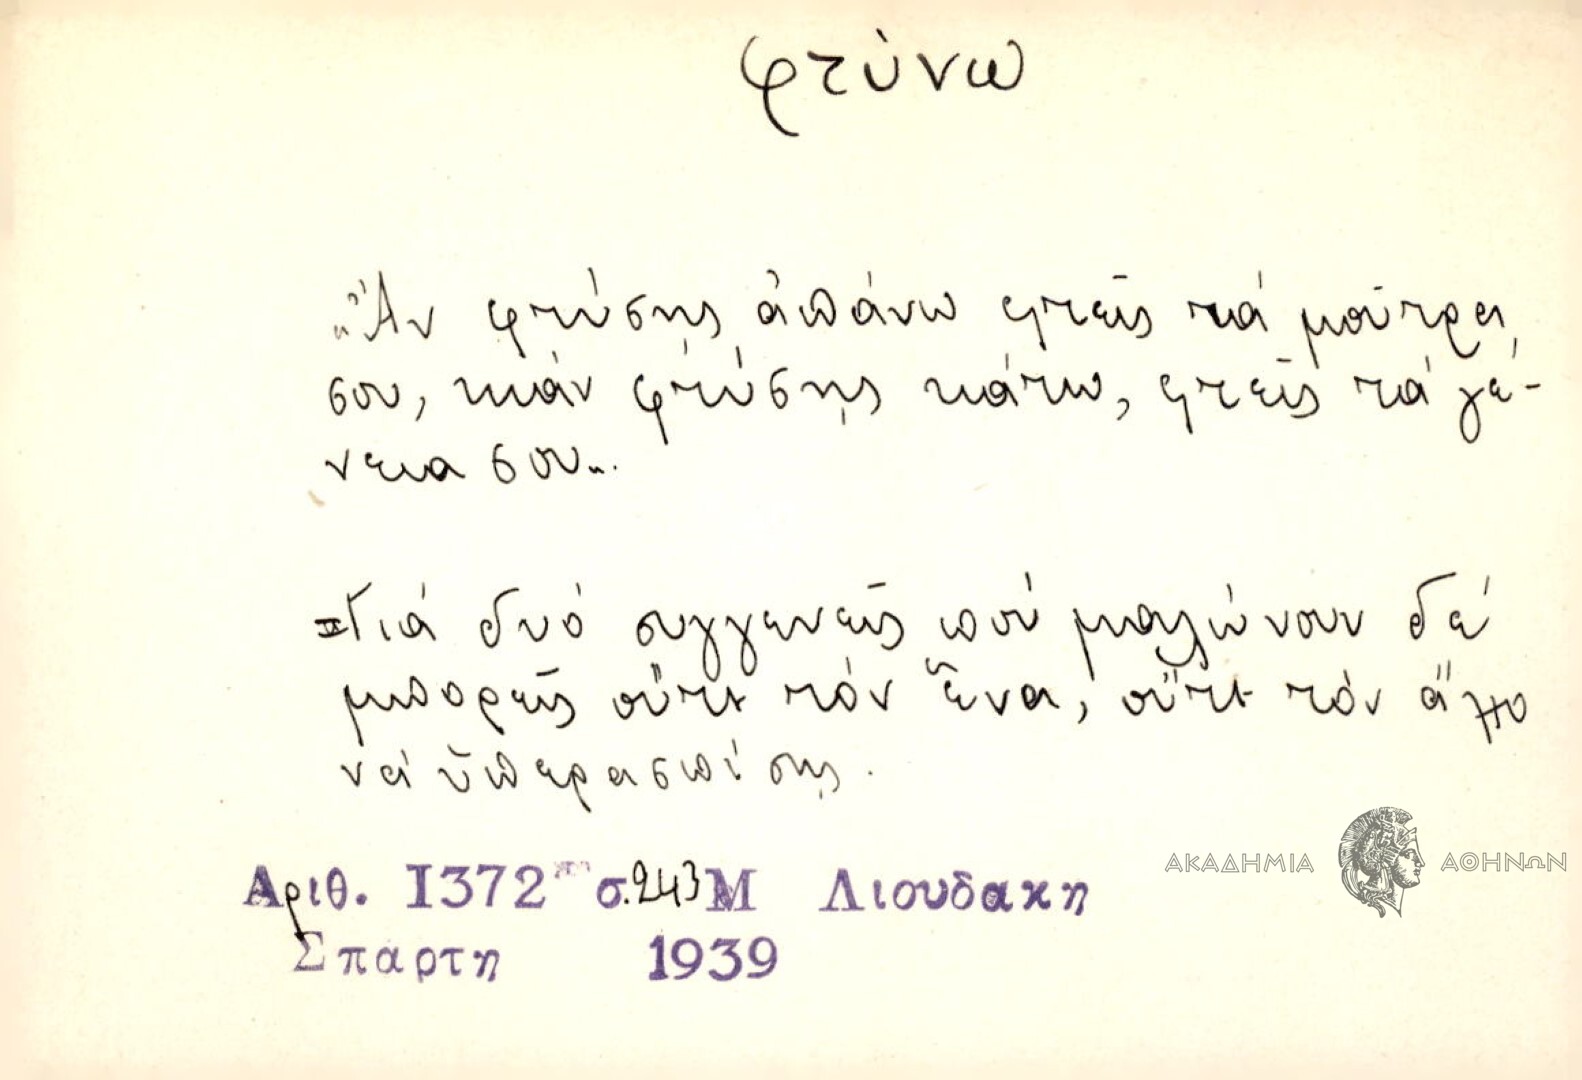 φτύνω
„Ἂν φτύσης ἀπάνω φτεῖς τά μοῦτρα
σου, κιάν φτύσῃς κάτω, φτεῖς τά γέ-
νεια σου".
= Γιά δυό συγγενεῖς πού μαλώνουν δέ
μπορεῖς οὔτε τόν ἕνα, οὔτε τόν ἄλλο
νά ὑπερασπίσῃς.
Αριθ. 1372 σ. 243 Μ Λιουδακη
Σπαρτη 1939
ΑΚΑΔΗΜΙΑ ΑΘΗΝΩΝ